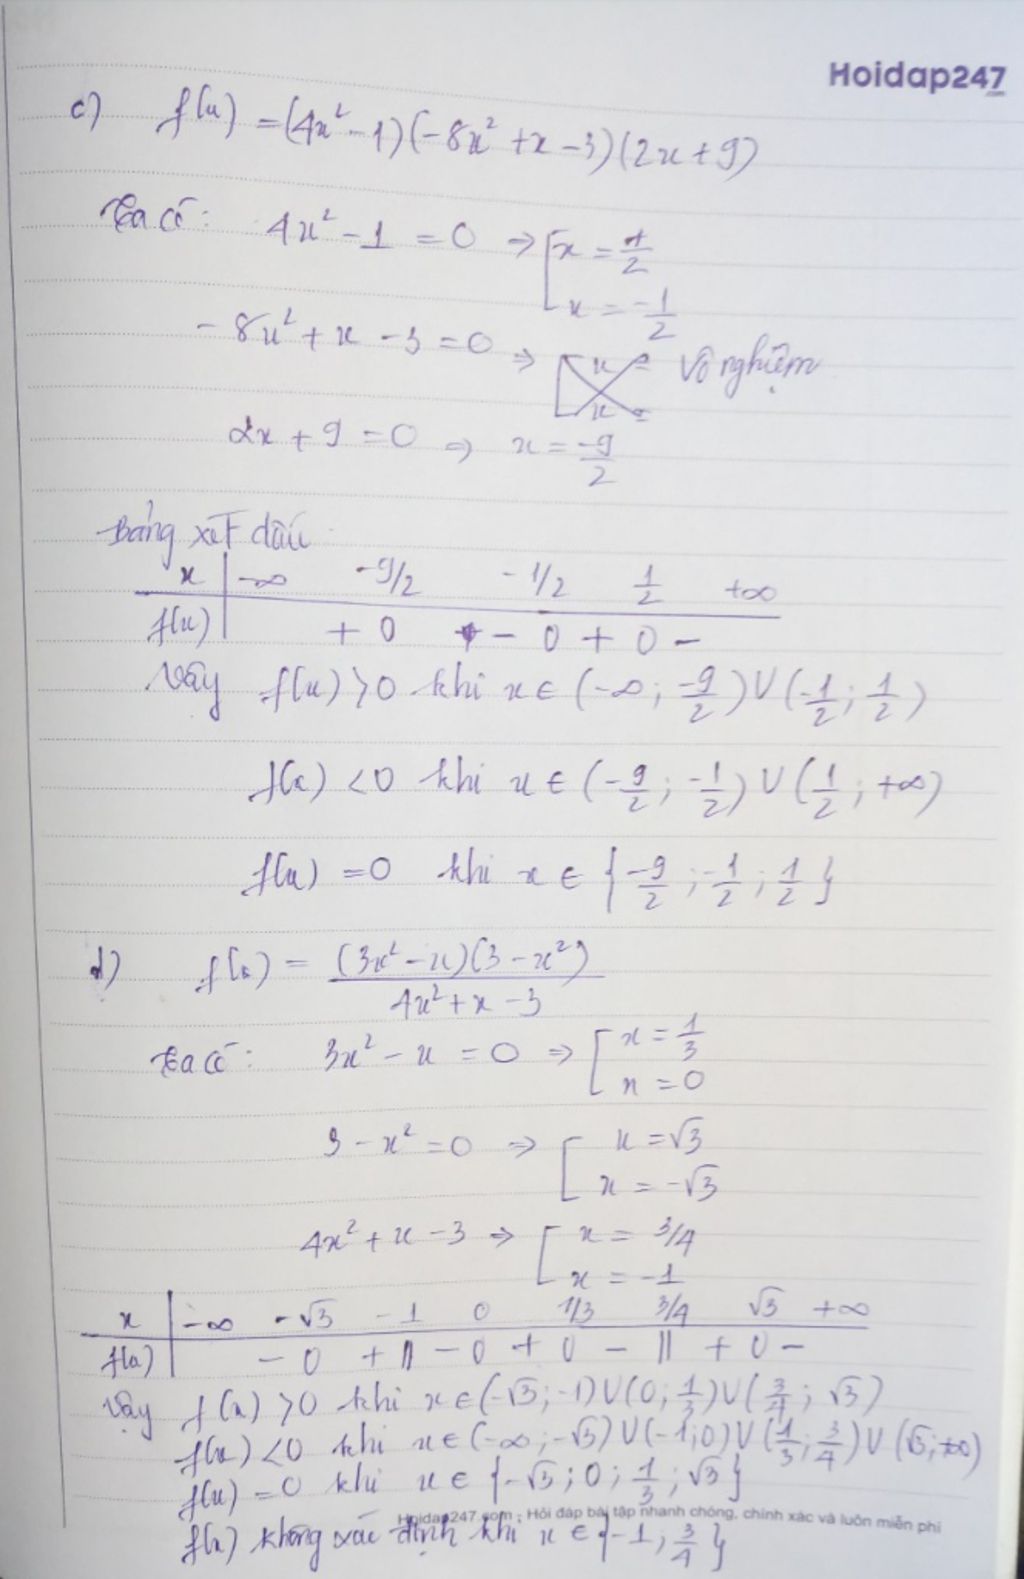 Hoidap247
c) f(x) = (4x² - 1)(-8x² + x - 3)(2x + 9)
Ta có: 4x² - 1 = 0 ⇒ [ x = 1/2
x = -1/2
-8x² + x - 3 = 0 ⇒ Vô nghiệm
2x + 9 = 0 ⇒ x = -9/2
Bảng xét dấu
x | -∞ -9/2 -1/2 1/2 +∞
f(x) | + 0 - 0 + 0 -
Vậy f(x) > 0 khi x ∈ (-∞; -9/2) ∪ (-1/2; 1/2)
f(x) < 0 khi x ∈ (-9/2; -1/2) ∪ (1/2; +∞)
f(x) = 0 khi x ∈ {-9/2; -1/2; 1/2}
d) f(x) = (3x² - x)(3 - x²) / 4x² + x - 3
Ta có: 3x² - x = 0 ⇒ [ x = 1/3
x = 0
3 - x² = 0 ⇒ [ x = √3
x = -√3
4x² + x - 3 ⇒ [ x = 3/4
x = -1
x | -∞ -√3 -1 0 1/3 3/4 √3 +∞
f(x) | - 0 + || - 0 + 0 - || + 0 -
Vậy f(x) > 0 khi x ∈ (-√3; -1) ∪ (0; 1/3) ∪ (3/4; √3)
f(x) < 0 khi x ∈ (-∞; -√3) ∪ (-1; 0) ∪ (1/3; 3/4) ∪ (√3; +∞)
f(x) = 0 khi x ∈ {-√3; 0; 1/3; √3}
Hoidap247.com - Hỏi đáp bài tập nhanh chóng, chính xác và luôn miễn phí
f(x) không xác định khi x ∈ {-1; 3/4}